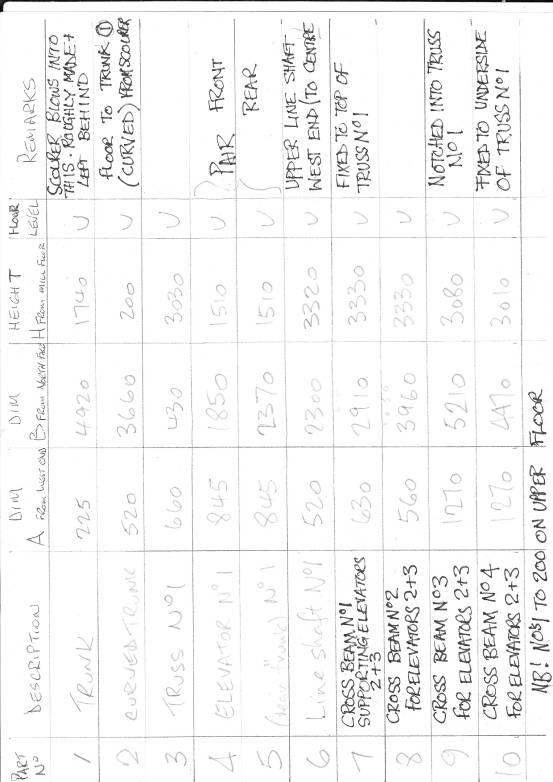 PART Nº DESCRIPTION A DIM FROM WEST END B DIM FROM NORTH FACE HEIGHT H FROM MILL FLOOR FLOOR LEVEL REMARKS
1 TRUNK 225 4920 1740 U SCOURER BLOWS INTO
THIS. ROUGHLY MADE +
LEFT BEHIND
2 CURVED TRUNK 520 3660 200 U FLOOR TO TRUNK ①
(CURVED) FROM SCOURER
3 TRUSS Nº1 660 430 3030 U
4 ELEVATOR Nº1 845 1850 1510 U } PAIR FRONT
5 Nº1 845 2370 1510 U } REAR
6 Line shaft Nº1 520 2300 3320 U UPPER LINE SHAFT
WEST END (TO CENTRE
7 CROSS BEAM Nº1
SUPPORTING ELEVATORS
2+3 630 2910 3330 U FIXED TO TOP OF
TRUSS Nº1
8 CROSS BEAM Nº2
FOR ELEVATORS 2+3 560 3960 3330 U
9 CROSS BEAM Nº3
FOR ELEVATORS 2+3 1270 5210 3080 U NOTCHED INTO TRUSS
Nº1
10 CROSS BEAM Nº4
FOR ELEVATORS 2+3 1270 4470 3010 U FIXED TO UNDERSIDE
OF TRUSS Nº1
NB! NOS 1 TO 200 ON UPPER FLOOR